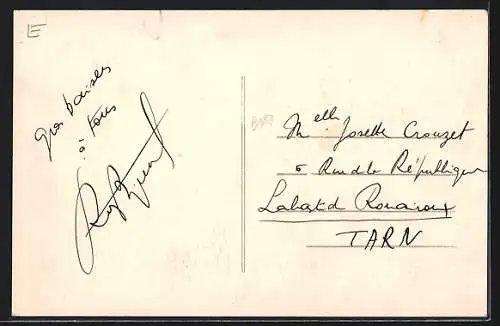 E
Gros baisers
à tous
Melle Josette Crouzet
6 Rue de la République
Labastd Rouairoux
TARN